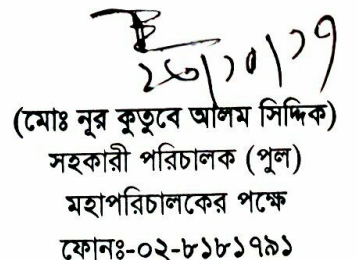 (মোঃ নূর কুতুবে আলম সিদ্দিক)
সহকারী পরিচালক (পুল)
মহাপরিচালকের পক্ষে
ফোনঃ-০২-৮১৮১৭৯১